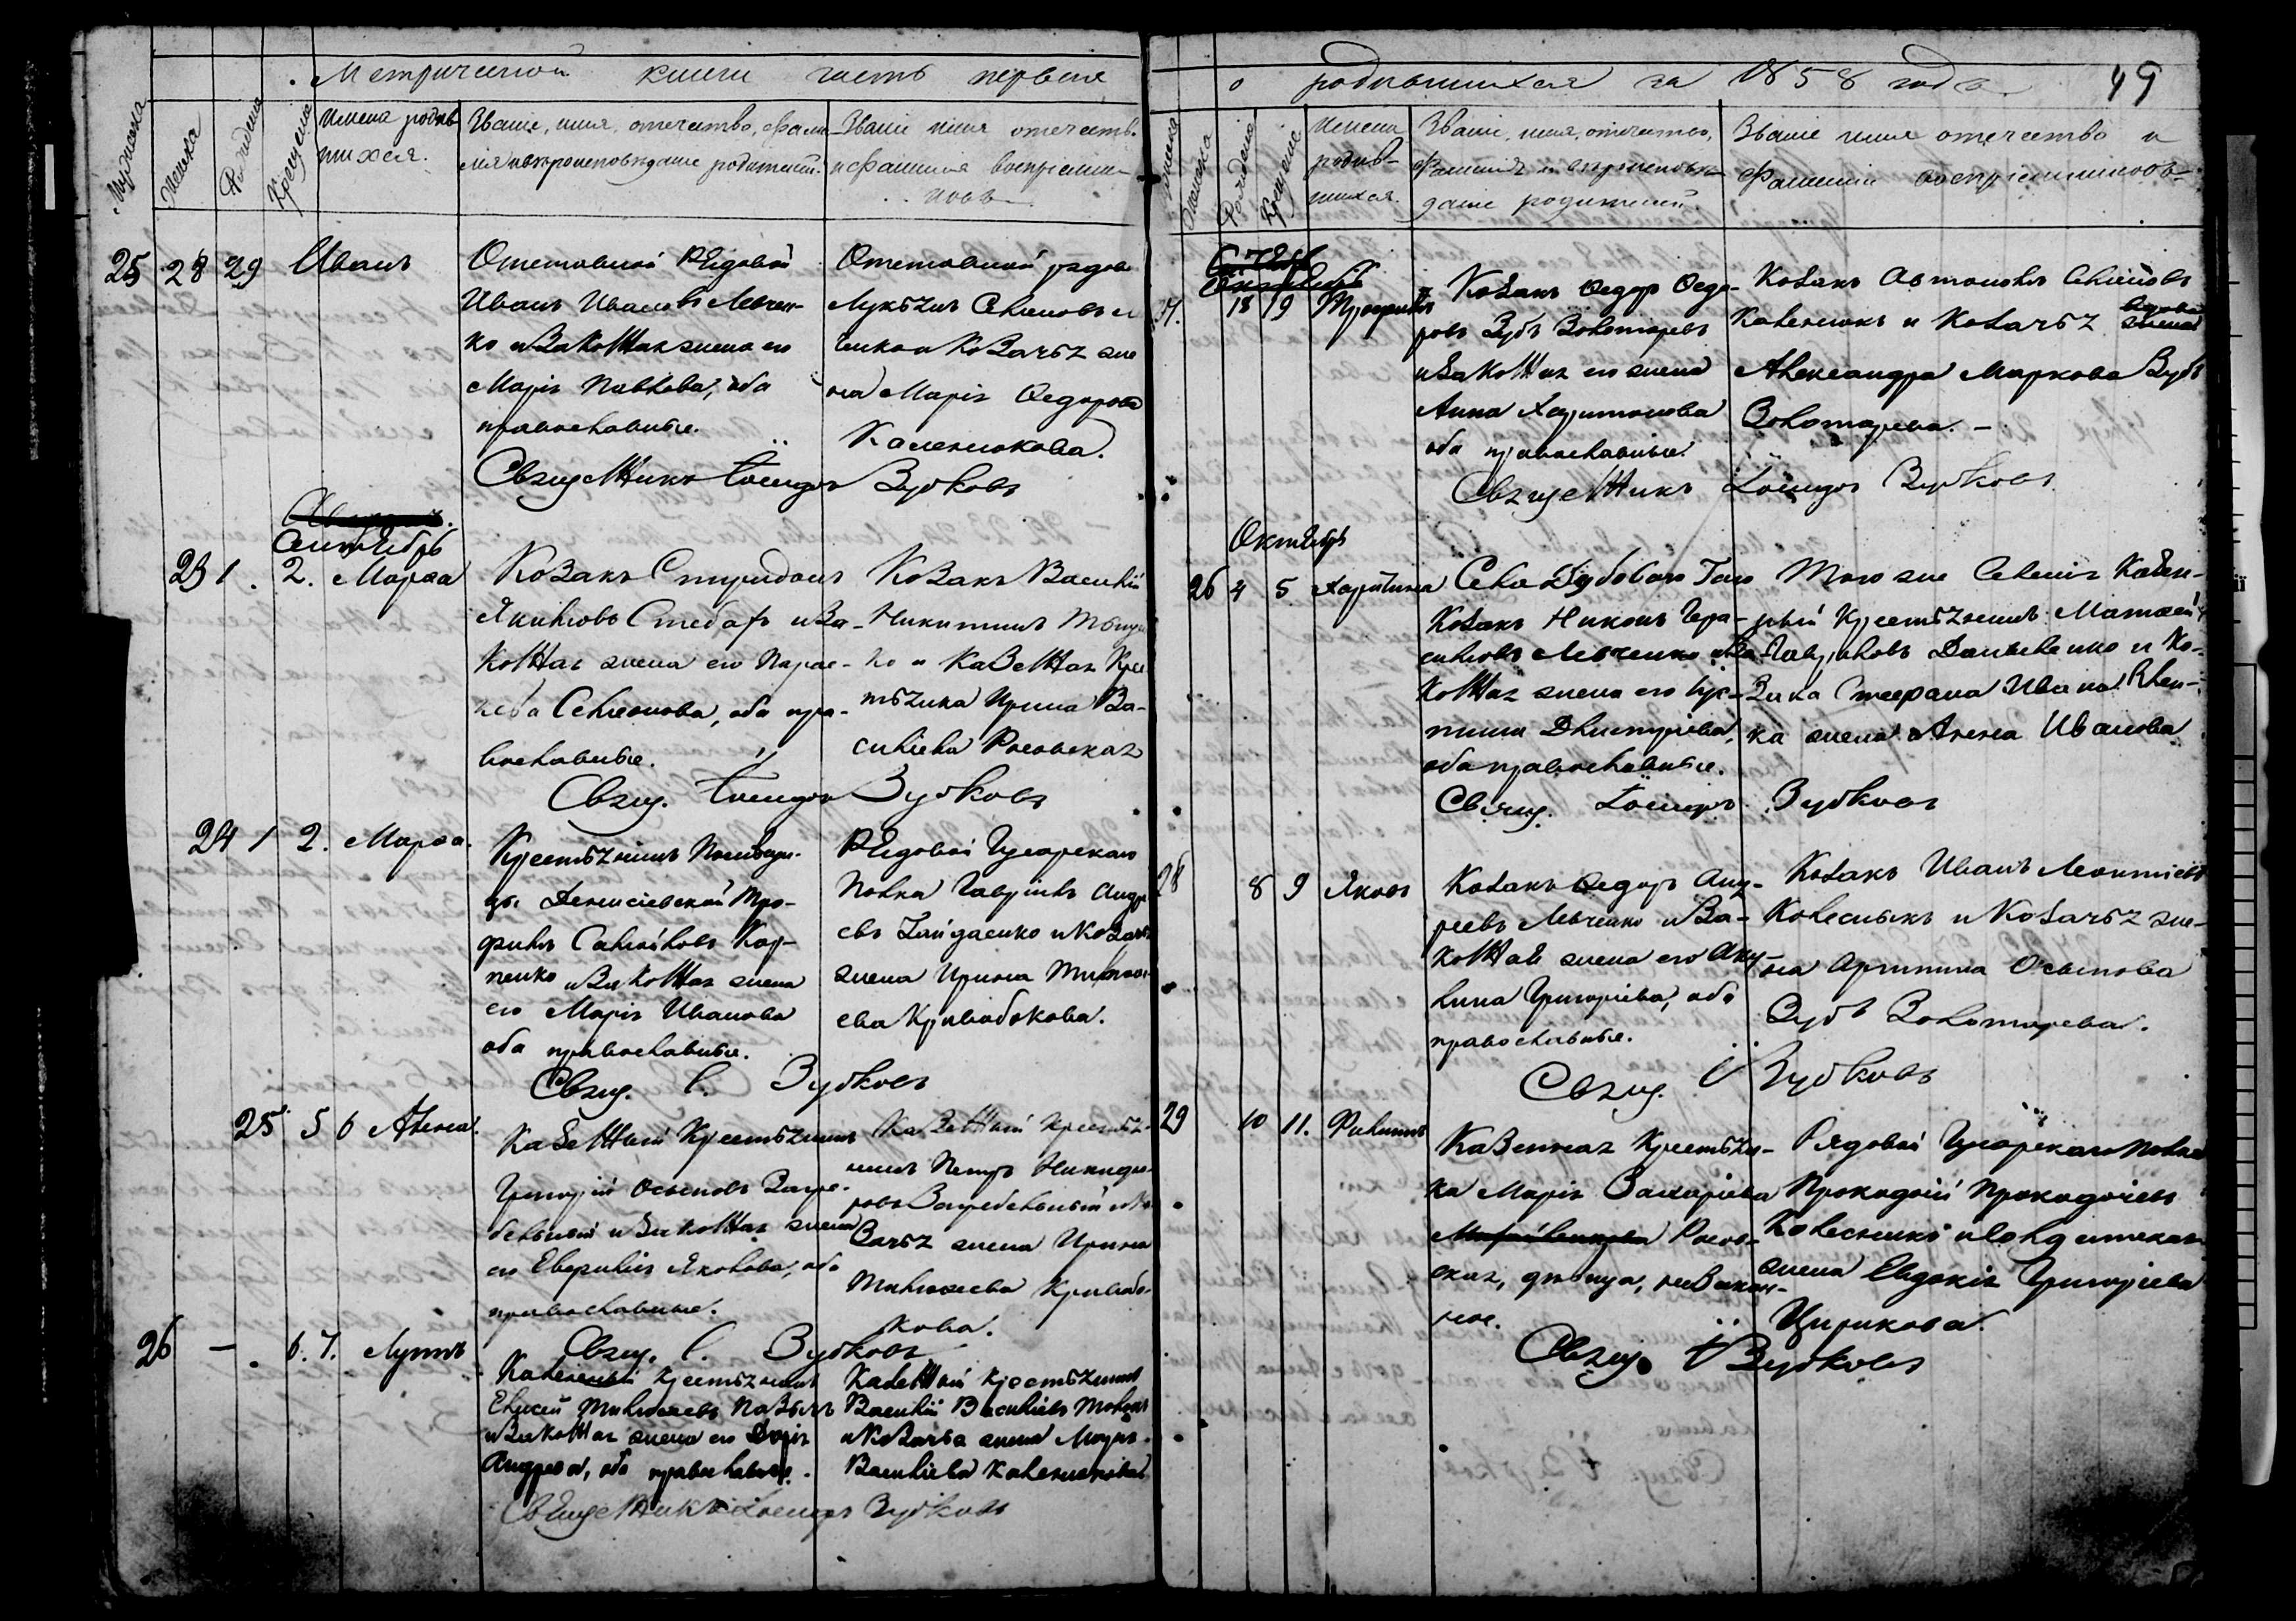 Метрической книги часть первая
Мужеска
Женска
Рожденія
Крещенія
Имена родив
шихся.
Званіе, имя, отечество, фами
лія и вѣроисповѣданіе родителей.
Званіе имя отечеств.
и фамилія воспріемни-
ковъ
25 28 29 Иванъ
Отставной Рядовой
Иванъ Ивановъ Левчен-
ко и законная жена его
Марія Павлова, оба
православные.
Отставной рядов
Лукьянъ Семеновъ
и козачья же
на Марія Федорова
Каленикова.
Священникъ Зубковъ
Сентябрь
23 1. 2. Марѳа
Козакъ Спиридонъ
Якимовъ и за-
конная жена его Парас-
кева Семенова, оба пра-
вославные.
Козакъ Василій
Никитинъ
ко и казенная Крес
тьянка Ирина Ва-
сильева Росовская
Свящ. Зубковъ
24 1 2. Марѳа.
Крестьянинъ
Тро-
фимъ Кар-
пенко и законная жена
его Марія Иванова
оба православные.
Рядовой Гусарскаго
Полка Гавріилъ Андре
евъ Гайдаенко и козачья
жена Ирина Тимоѳе
ева Кривобокова.
Свящ. Зубковъ
25 5 6 Анна.
Казенный Крестьянинъ
Григорій Осиповъ Загре-
бельный и законная жена
его Яковлева, оба
православные.
Казенный крестья-
нинъ Петръ Никифо-
ровъ Загребельный и ко-
зачья жена Ирина
Тимоѳеева Кривобо-
кова.
Свящ. Зубковъ
26 — 6. 7. Лупъ
Казенный Крестьянинъ
Тимоѳеевъ
и законная жена его Дарія
Андреева, оба православные.
Казенный крестьянинъ
Василій Васильевъ
и козачья жена Марія
Васильева Каленикова
Священникъ Зубковъ
о родившихся за 1858 годъ. 49
Женска
Рожденія
Крещеніе
Имена
родив-
шихся.
Званіе, имя, отечество,
фамилія и вѣроисповѣ-
даніе родителей.
Званіе имя отечество и
фамилія воспріемниковъ
18 19 Трофимъ
Козакъ Федоръ Федо-
ровъ Зубъ Золотаревъ
и законная его жена
Анна Харитонова
оба православные.
Козакъ Автономъ Семеновъ
Каленикъ и козачья
Александра Маркова Зубъ
Золотарева. –
Священникъ Зубковъ
Октябрь
26 4 5 Харитина
Села Дубоваго Гаю
Козакъ Никонъ Гера-
симовъ Левченко и за-
конная жена его Хрис-
тина Дмитріева,
оба православные.
Того же Селенія Казен-
ный Крестьянинъ Матвей
Гавриловъ Даниленко и ко-
зака Стефана Ивана
ка жена Анна Иванова
Свящ. Зубковъ
28 8 9 Яковъ
Козакъ Федоръ Анд-
реевъ Левченко и за-
конная жена его Аку-
лина Григоріева, оба
православные.
Козакъ Иванъ Леонтіевъ
Колесникъ и козачья же-
на Агрипина Осипова
Зубъ Золотарева.
Свящ. Зубковъ
29 10 11. Филиппъ
Казенная Крестьян-
ка Марія Захаріева
Росов-
ская, дѣвица, незакон-
ное.
Рядовой Гусарскаго полка
Прокофій Прокофіевъ
Колесникъ и солдатская
жена Евдокія Григоріева
Цирикова.
Свящ. Зубковъ